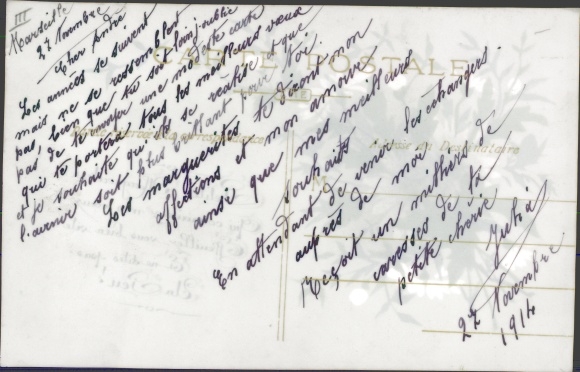 III
Marseille
27 Novembre
Cher André
Les années se suivent
mais ne se ressemblent
pas, bien que tu sois loin j'oublie
pas de t'envoyer une modeste carte
que te portera tous les meilleurs vœux
et je souhaite qu'ils se réalise et que
l'avenir soit plus brillant pour toi.
Les marguerites te diront mon
affections et mon amour
ainsi que mes meilleurs
souhaits
En attendant de venir les étrangers
auprès de moi
Reçoit un milliers de
caresses de ta
petite chérie
27 Novembre
1914
CARTE POSTALE
Correspondance
Adresse du Destinataire
M